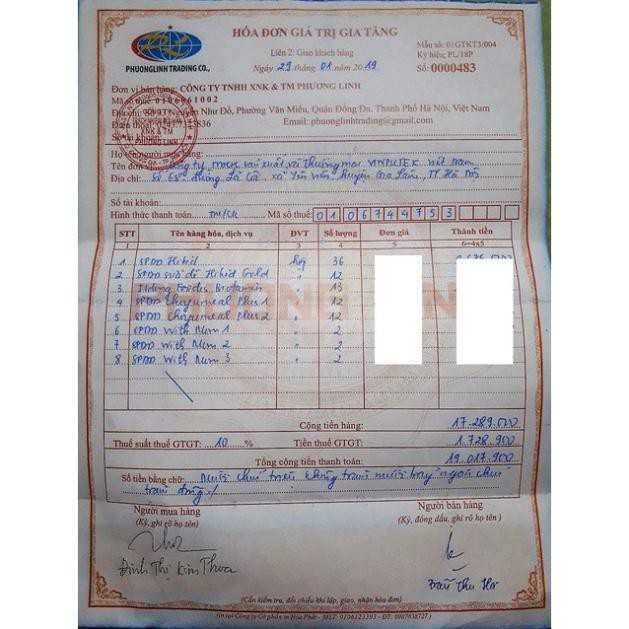 HÓA ĐƠN GIÁ TRỊ GIA TĂNG
Liên 2: Giao khách hàng
Ngày 29 tháng 01 năm 2019
Mẫu số: 01GTKT3/004
Ký hiệu: PL/18P
Số: 0000483
PHUONGLINH TRADING CO.,
Đơn vị bán hàng: CÔNG TY TNHH XNK & TM PHƯƠNG LINH
Mã số thuế:
Địa chỉ: Nguyễn Như Đổ, Phường Văn Miếu, Quận Đống Đa, Thành Phố Hà Nội, Việt Nam
Điện thoại: Email: phuonglinhtrading@gmail.com
Số tài khoản:
XNK & TM
PHƯƠNG LINH
Họ tên người mua hàng:
Tên đơn vị: Công ty TNHH sản xuất và thương mại Việt Nam
Địa chỉ: xã Yên Viên, huyện Gia Lâm, TP Hà Nội
Số tài khoản:
Hình thức thanh toán: TM/CK Mã số thuế: 0106744753
STT Tên hàng hóa, dịch vụ ĐVT Số lượng Đơn giá Thành tiền
1 2 3 4 5 6=4x5
1 SPDD Hikid hộp 36
2 SPDD sữa dê Hikid Gold " 12
3 Ildong Foodis " 13
4 SPDD Plus 1 " 12
5 SPDD Plus 2 " 12
6 SPDD With Mum 1 " 2
7 SPDD With Mum 2 " 2
8 SPDD With Mum 3 " 2
Cộng tiền hàng: 17.289.000
Thuế suất thuế GTGT: 10 % Tiền thuế GTGT: 1.728.900
Tổng cộng tiền thanh toán: 19.017.900
Số tiền bằng chữ: Mười chín triệu không trăm mười bảy ngàn chín
trăm đồng./.
Người mua hàng Người bán hàng
(Ký, ghi rõ họ tên) (Ký, đóng dấu, ghi rõ họ tên)
Đinh Thị Kim Thoa
Trần Thu Hà
(Cần kiểm tra, đối chiếu khi lập, giao, nhận hóa đơn)
(In tại Công ty Cổ phần in Hòa Phát - MST: 0106123393 - ĐT: 0987838727)